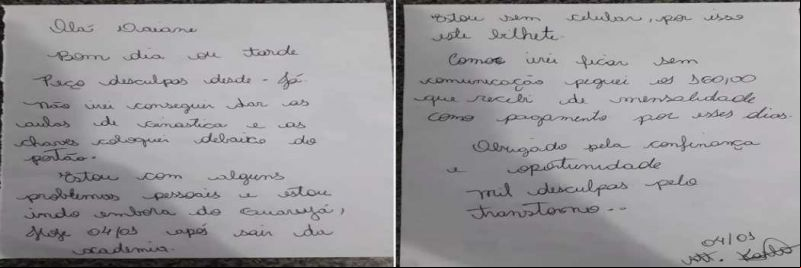 Olá Daiane
Bom dia ou tarde
Peço desculpas desde-já
não irei conseguir dar as
aulas de ginastica e as
chaves coloquei debaixo do
portão.
Estou com alguns
problemas pessoais e estou
indo embora do Guarujá,
Hoje 04/03 após sair da
academia.
Estou sem celular, por isso
este bilhete.
Como irei ficar sem
comunicação peguei os 360,00
que recebi de mensalidade
como pagamento por esses dias.
Obrigado pela confinança
e oportunidade
mil desculpas pelo
transtorno..
04/03
Att.